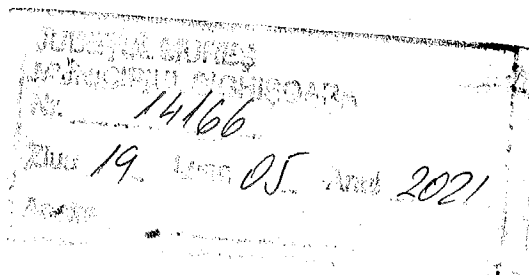 JUDEȚUL MUREȘ
MUNICIPIUL SIGHIȘOARA
Nr. 14166
Ziua 19 Luna 05 Anul 2021
Anexe